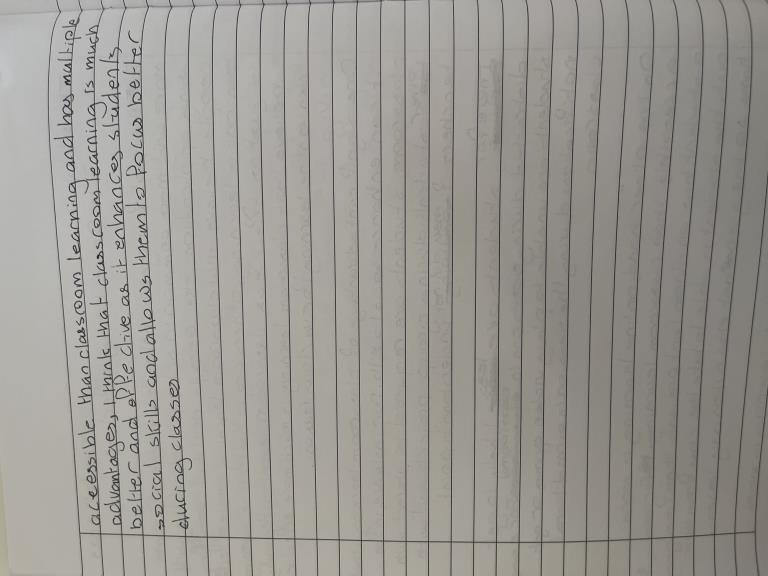 accessible than classroom learning and has multiple
advantages, I think that classroom learning is much
better and effective as it enhances students,
social skills and allows them to focus better
during classes